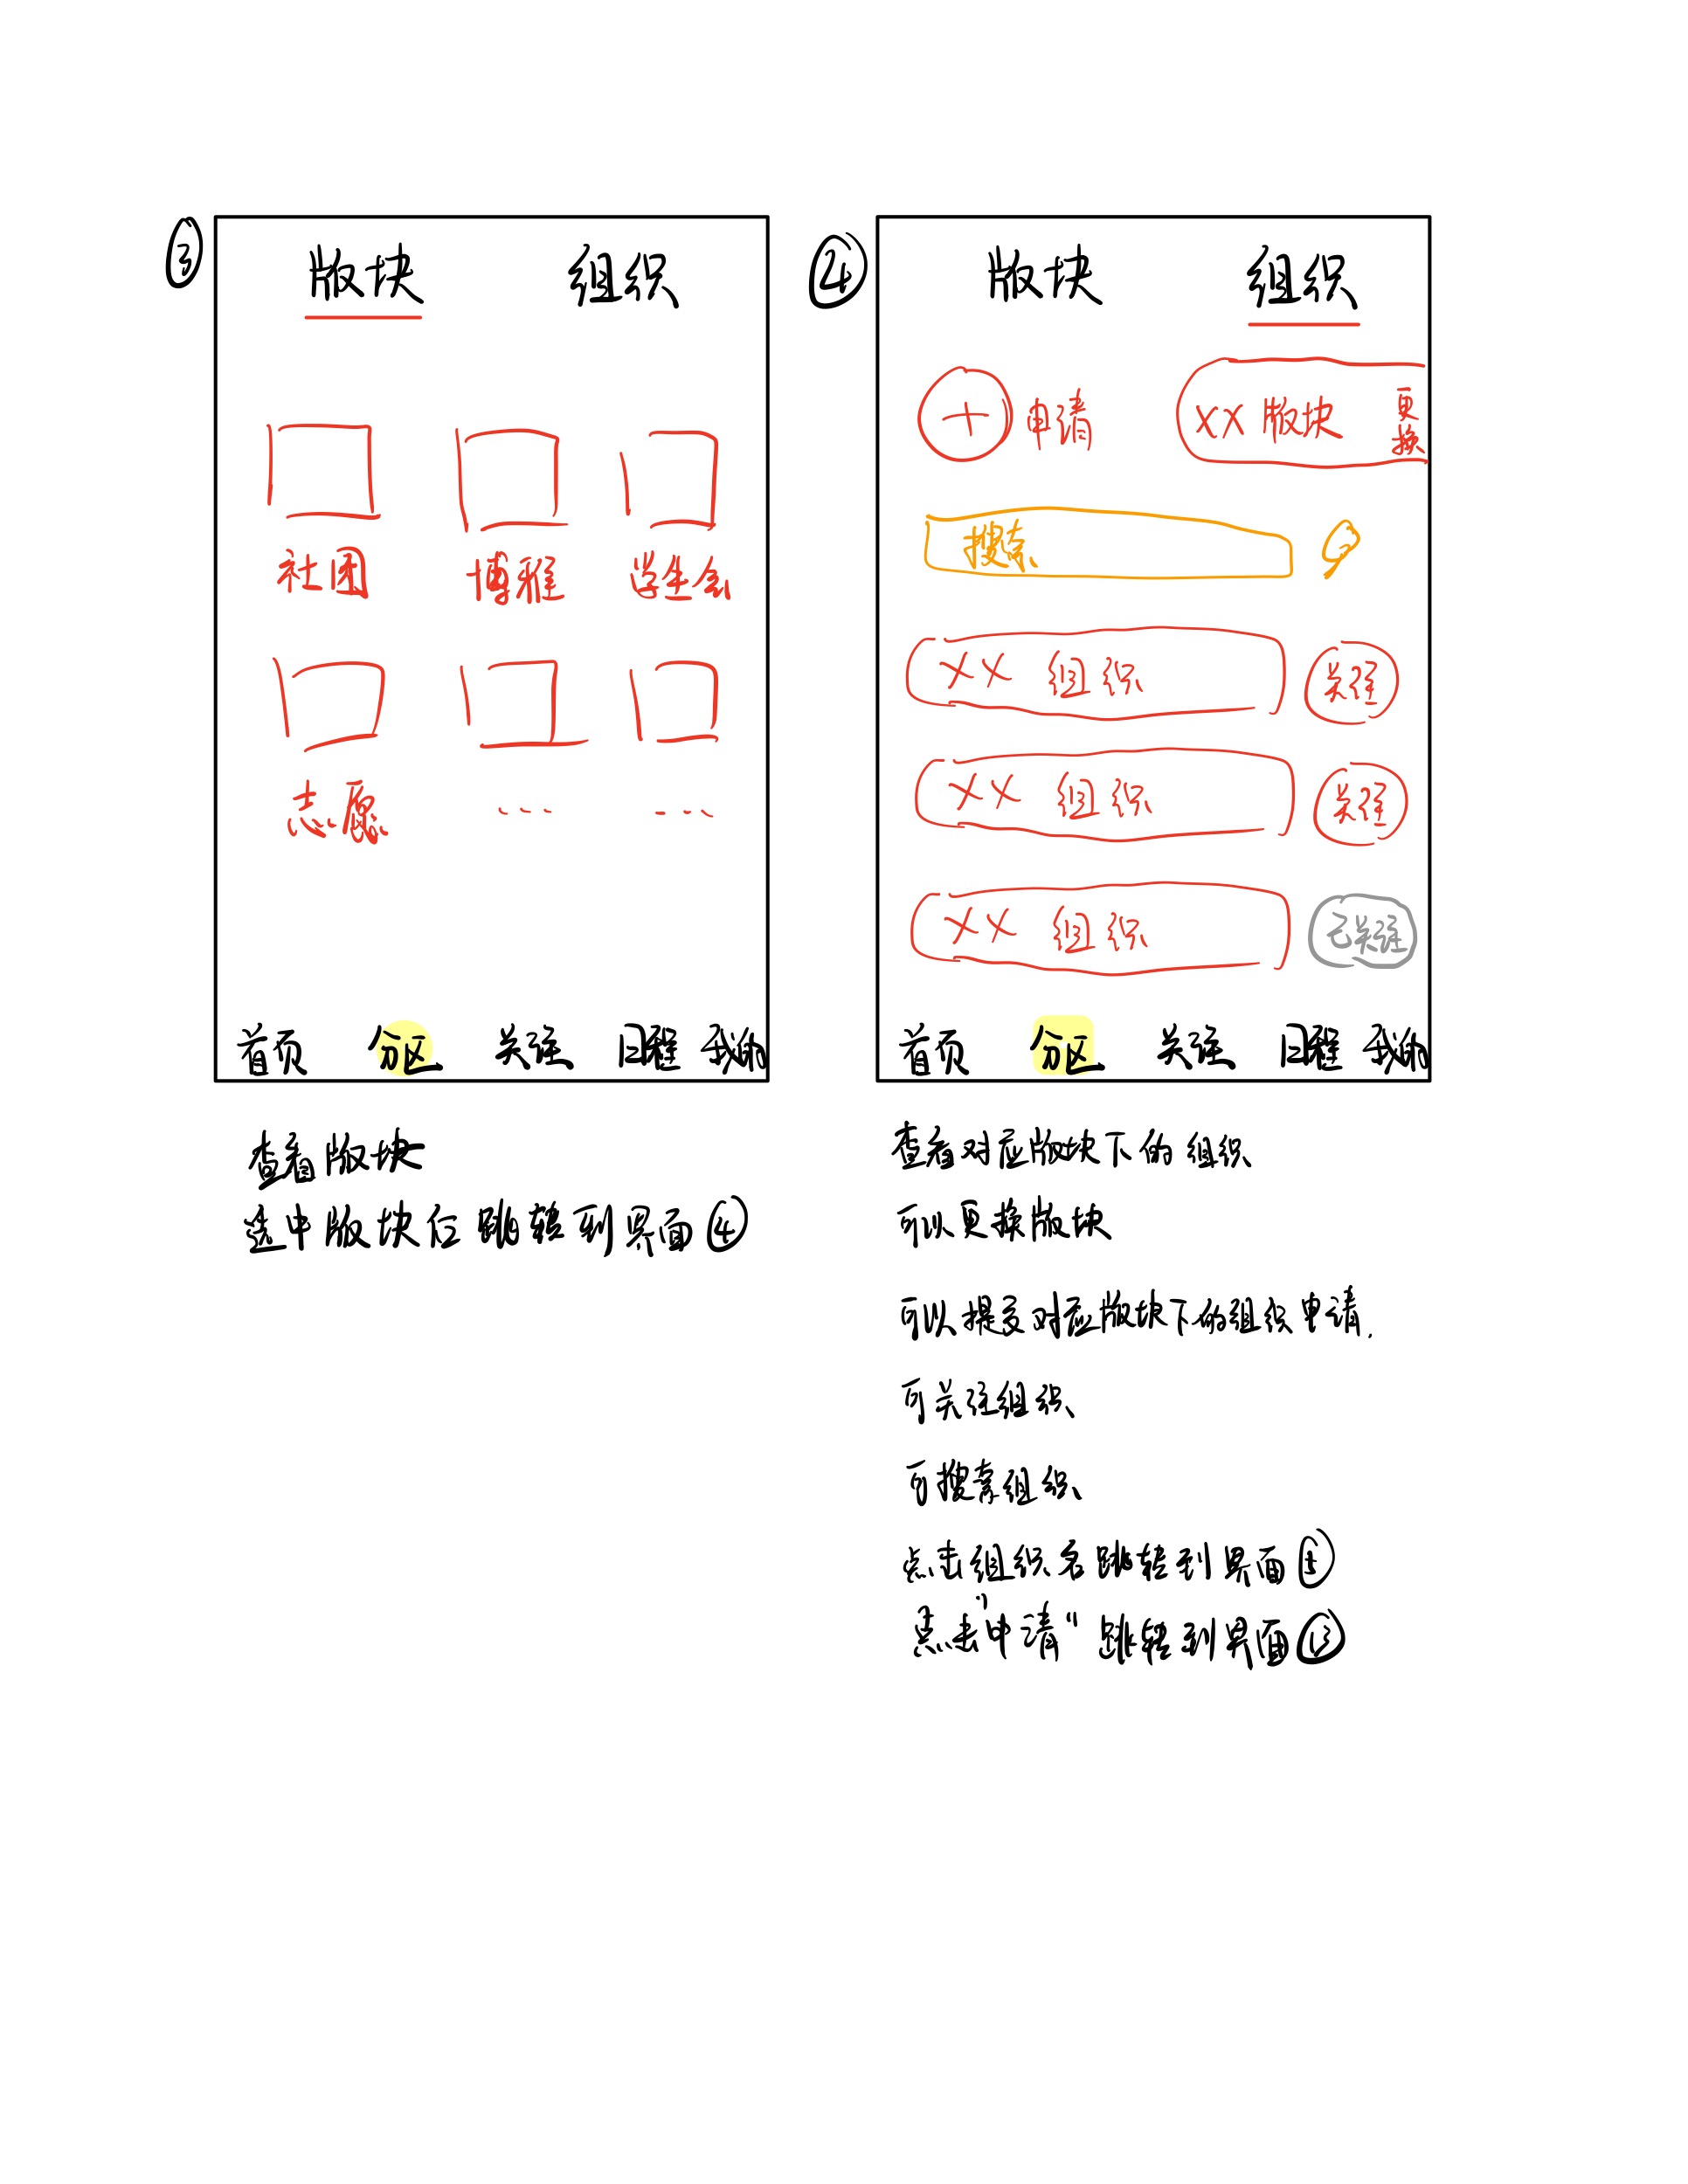 ③
版块 组织
社团 博雅 学生会
志愿 ... ...
首页 分区 关注 日程 我的
查看版块
选中版块后跳转到界面④
④
版块 组织
+ 申请 XX 版块 更换
搜索
XX 组织 关注
XX 组织 关注
XX 组织 已关注
首页 分区 关注 日程 我的
查看对应版块下的组织
可以更换版块
可以提交对应版块下的组织申请.
可关注组织
可搜索组织
点击组织名跳转到界面⑤
点击"申请"跳转到界面⑬